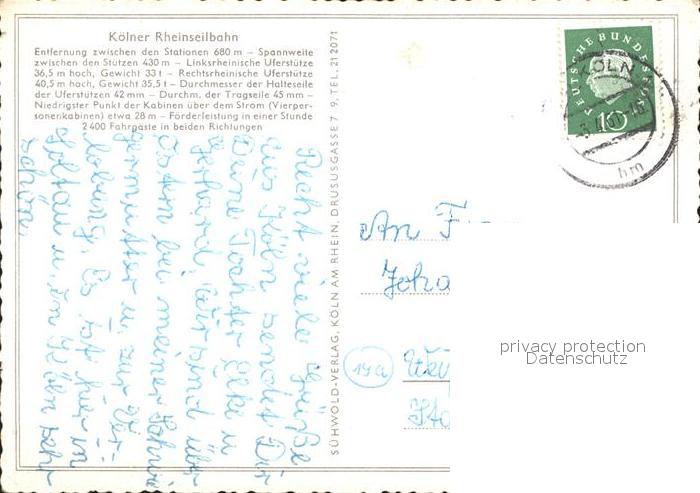 Kölner Rheinseilbahn
Entfernung zwischen den Stationen 680 m – Spannweite
zwischen den Stützen 430 m – Linksrheinische Uferstütze
36,5 m hoch, Gewicht 33 t – Rechtsrheinische Uferstütze
40,5 m hoch, Gewicht 35,5 t – Durchmesser der Halteseile
der Uferstützen 42 mm – Durchm. der Tragseile 45 mm –
Niedrigster Punkt der Kabinen über dem Strom (Vierper-
sonenkabinen) etwa 28 m – Förderleistung in einer Stunde
2400 Fahrgäste in beiden Richtungen
Recht viele Grüße
aus Köln sendet Dir
Deine Tochter Elke u
Gerhard. Wir sind über
Ostern bei meiner Schwie
germutter u. zur Ver-
lobung. Es ist hier in
Soltau u. in Köln sehr
schön.
SÜHWOLD-VERLAG, KÖLN AM RHEIN, DRUSUSGASSE 7 9, TEL. 21 2071
DEUTSCHE BUNDESPOST
10
KÖLN
An
Joha
19a
privacy protection
Datenschutz